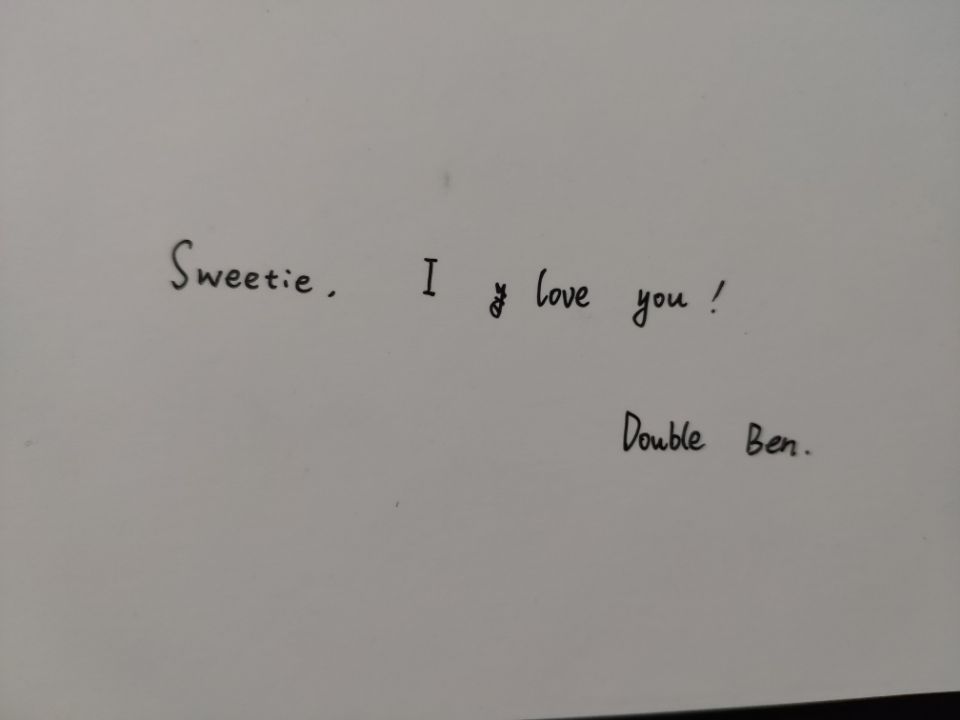 Sweetie, I love you!
Double Ben.